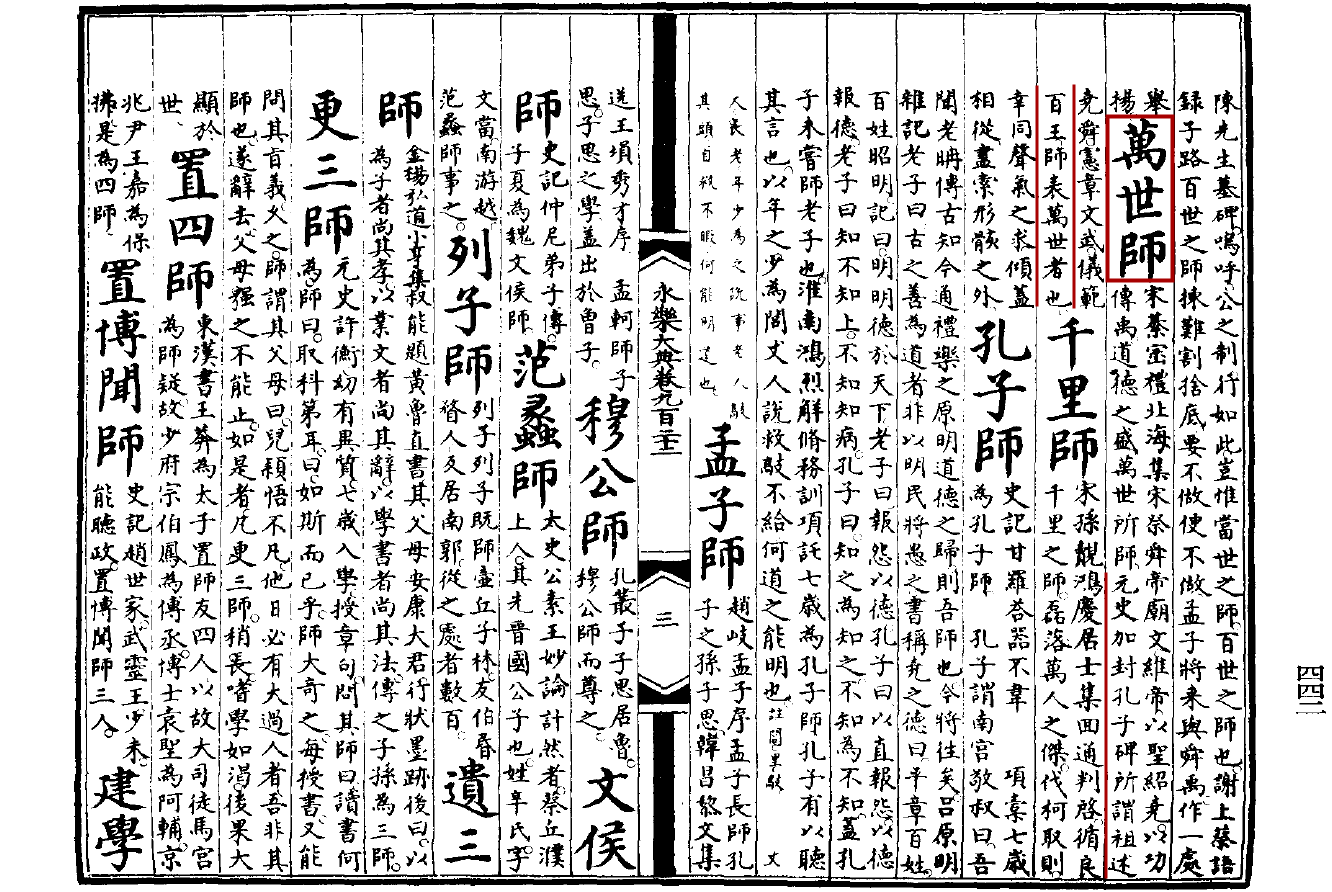 陳先生墓碑。嗚呼。公之制行如此豈惟當世之師。百世之師也。謝上蔡語
録子路百世之師揀難割捨底要不做便不做孟子將来與舜禹作一處
舉
揚
萬世師
宋綦崇禮北海集宋祭舜帝廟文維帝以聖紹尭以功
傳禹道德之盛萬世所師元史加封孔子碑所謂祖述
尭舜憲章文武儀範
百王師表萬世者也
千里師
宋孫覿鴻慶居士集回通判啓循良
千里之師磊落萬人之傑伐柯取則
幸同聲氣之求傾蓋
相從盡索形骸之外
孔子師
史記甘羅荅噐不韋 項橐七歲
為孔子師 孔子謂南宫敬叔曰吾
聞老聃博古知今通禮樂之原明道德之歸則吾師也今將往矣吕原明
雜記老子曰古之善為道者非以明民將愚之書稱尭之德曰平章百姓
百姓昭明記曰明明德於天下老子曰報怨以德孔子曰以直報怨以德
報德老子曰知不知上。不知知病孔子曰知之為知之不知為不知蓋孔
子未嘗師老子也淮南鴻烈解脩務訓項託七歲為孔子師孔子有以聽
其言也以年之少為閭丈人說救敲不給何道之能明也註閭里敲 丈
人長老年少為之說事老人敲
其頭自救不暇何能明道也
孟子師
趙岐孟子序孟子長師孔
子之孫子思韓昌黎文集
送王塤秀才序 孟軻師子
思。子思之學蓋出於曾子。
穆公師
孔叢子子思居魯。
穆公師而尊之。
文侯
師
史記仲尼弟子傳。
子夏為魏文侯師
范蠡師
太史公素王妙論計然者。蔡丘濮
上人其先晋國公子也。姓辛氏字
文當南游越。
范蠡師事之。
列子師
列子列子既師壺丘子林友伯昏
瞀人反居南郭從之處者數百。
遺三
師
金楊弘道小亨集叔能題黄魯直書其父母安康太君行狀墨跡後曰。以
為子者尚其孝。以業文者尚其辭。以學書者尚其法。傳之子孫為三師。
更三師
元史許衡幼有異質七歲入學授章句問其師曰讀書何
為。師曰。取科第耳。曰。如斯而已乎。師大奇之。每授書。又能
問其旨義久之。師謂其父母曰兒穎悟不凡。他日必有大過人者吾非其
師也。遂辭去。父母強之不能止。如是者凡更三師。稍長嗜學如渴。後果大
顯於
世
置四師
東漢書王莽為太子置師友四人以故大司徒馬宫
為師疑故少府宗伯鳳為傅丞博士袁聖為阿輔京
兆尹王嘉為保
拂是為四師
置博聞師
史記趙世家武靈王少未
能聽政置博聞師三人。
建學
永樂大典卷九百二十二
三
四四二